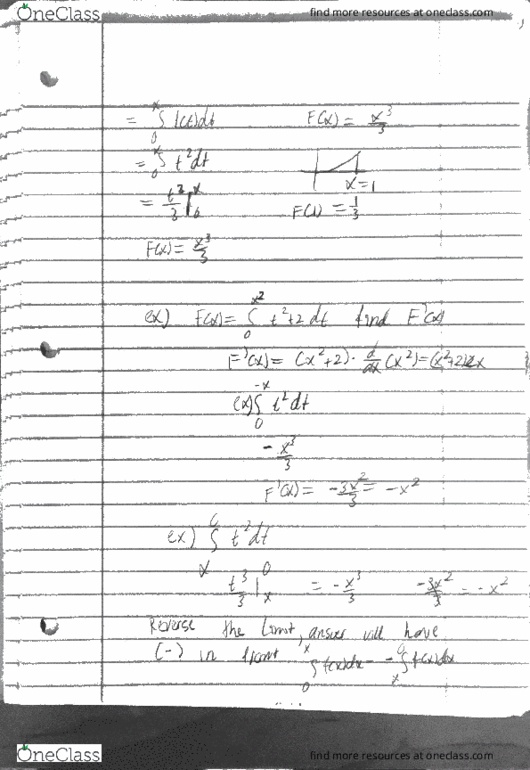 OneClass find more resources at oneclass.com
= ∫₀ˣ f(t)dt F(x) = x³/3
= ∫₀ˣ t²dt
x=1
= t³/3 |₀ˣ F(1) = 1/3
F(x) = x³/3
ex) F(x) = ∫₀^(x²) t²+2 dt find F'(x)
F'(x) = (x²+2) · d/dx (x²) = (x²+2)2x
ex) ∫₀^(-x) t²dt
- x³/3
F'(x) = -3x²/3 = -x²
ex) ∫ₓ⁰ t²dt
t³/3 |ₓ⁰ = -x³/3 -3x²/3 = -x²
Reverse the limit, answer will have
(-) in front ∫₀ˣ f(x)dx = -∫ₓ⁰ f(x)dx
OneClass find more resources at oneclass.com